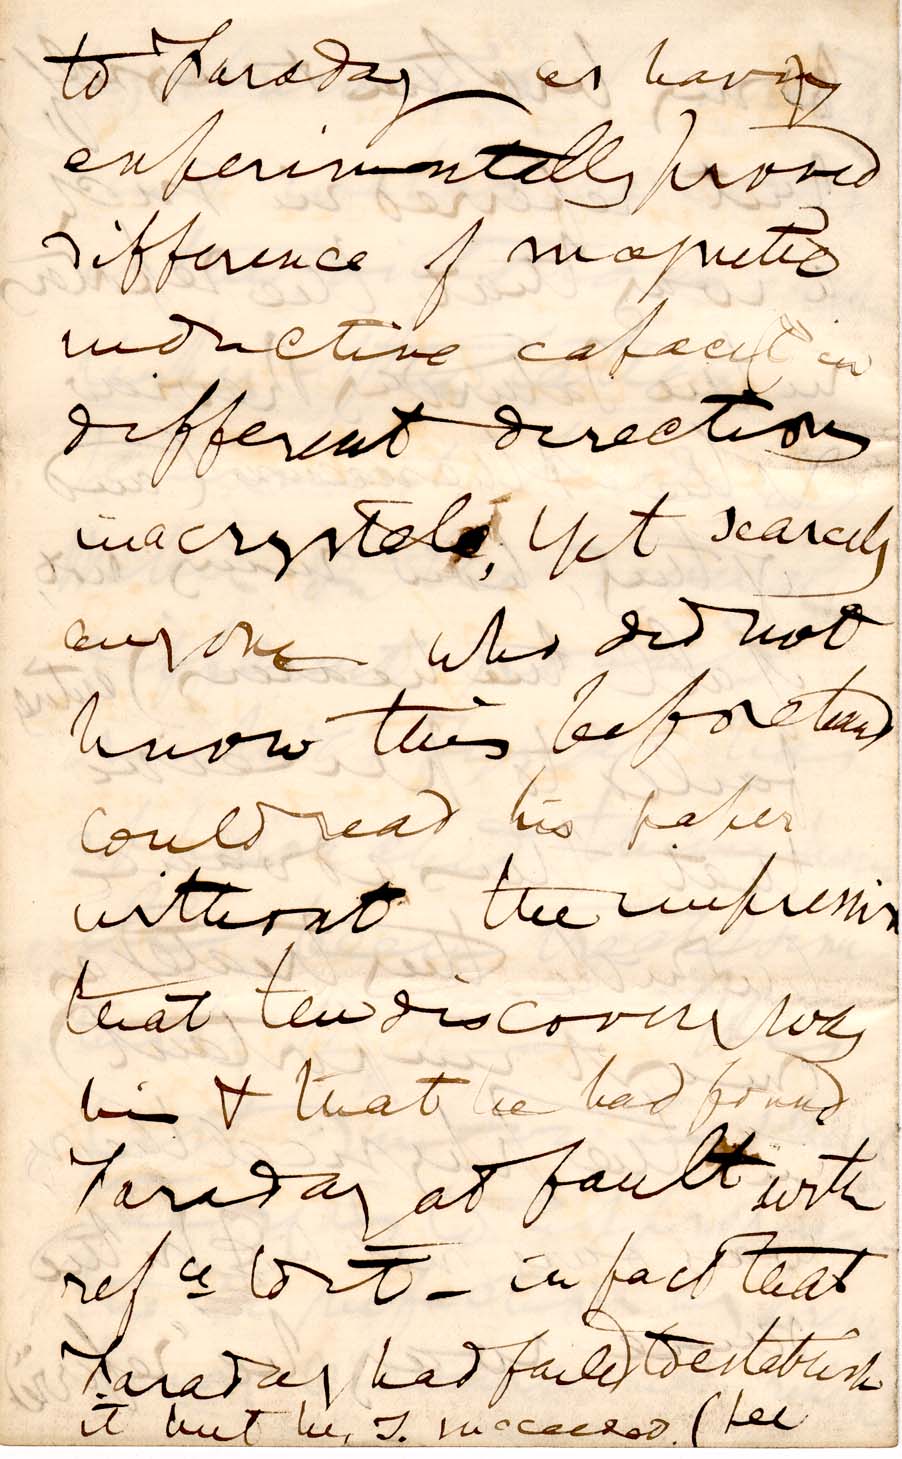 to Faraday as having
experimentally proved
difference of magnetic
inductive capacity in
different directions
in a crystals, yet scarcely
anyone who did not
know this beforehand
could read his paper
without the impression
that the discovery was
his & that he had found
Faraday at fault with
refce to it – in fact that
Faraday had failed to establish
it but he, T. succeeded. (See